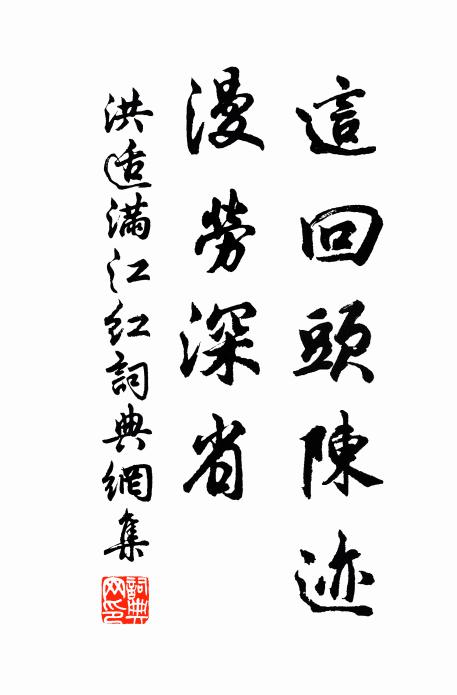 這回頭陳迹
漫勞深省
洪适滿江紅詞典網集
詞典網印